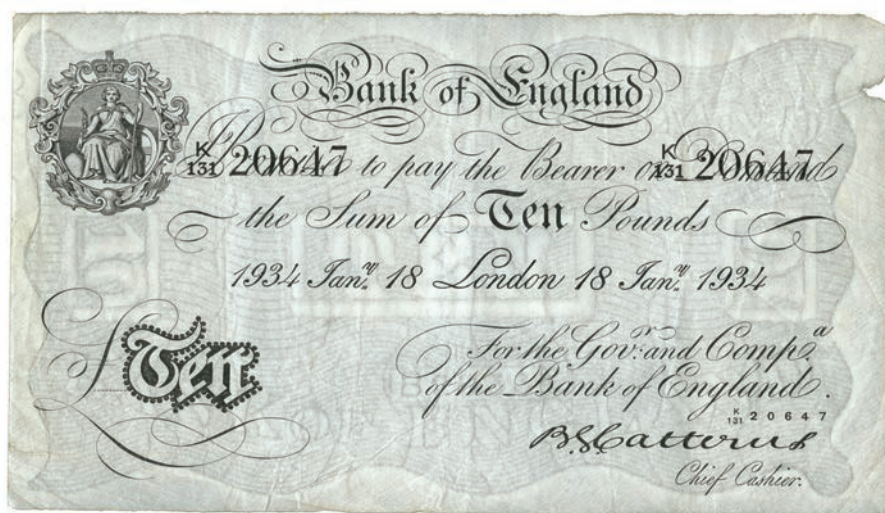 Bank of England
K/131 20647 K/131 20647
I Promise to pay the Bearer on Demand
the Sum of Ten Pounds
1934 Jan.y 18 London 18 Jan.y 1934
For the Gov.r and Comp.a
of the Bank of England.
K/131 20647
£Ten
B.G. Catterns
Chief Cashier.